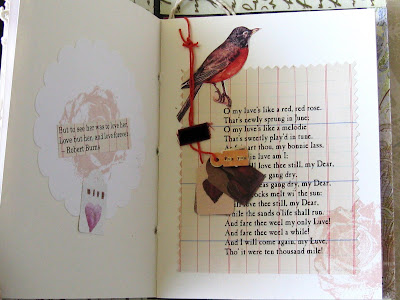 But to see her was to love her,
Love but her, and love forever.
~ Robert Burns
O my luve's like a red, red rose,
That's newly sprung in June;
O my luve's like a melodie
That's sweetly play'd in tune.
art thou, my bonnie lass,
in luve am I;
love thee still, my Dear,
gang dry,
seas gang dry, my Dear,
rocks melt wi' the sun;
love thee still, my Dear,
While the sands o' life shall run.
And fare thee weel my only Luve!
And fare thee weel a while!
And I will come again, my Luve,
Tho' it were ten thousand mile!